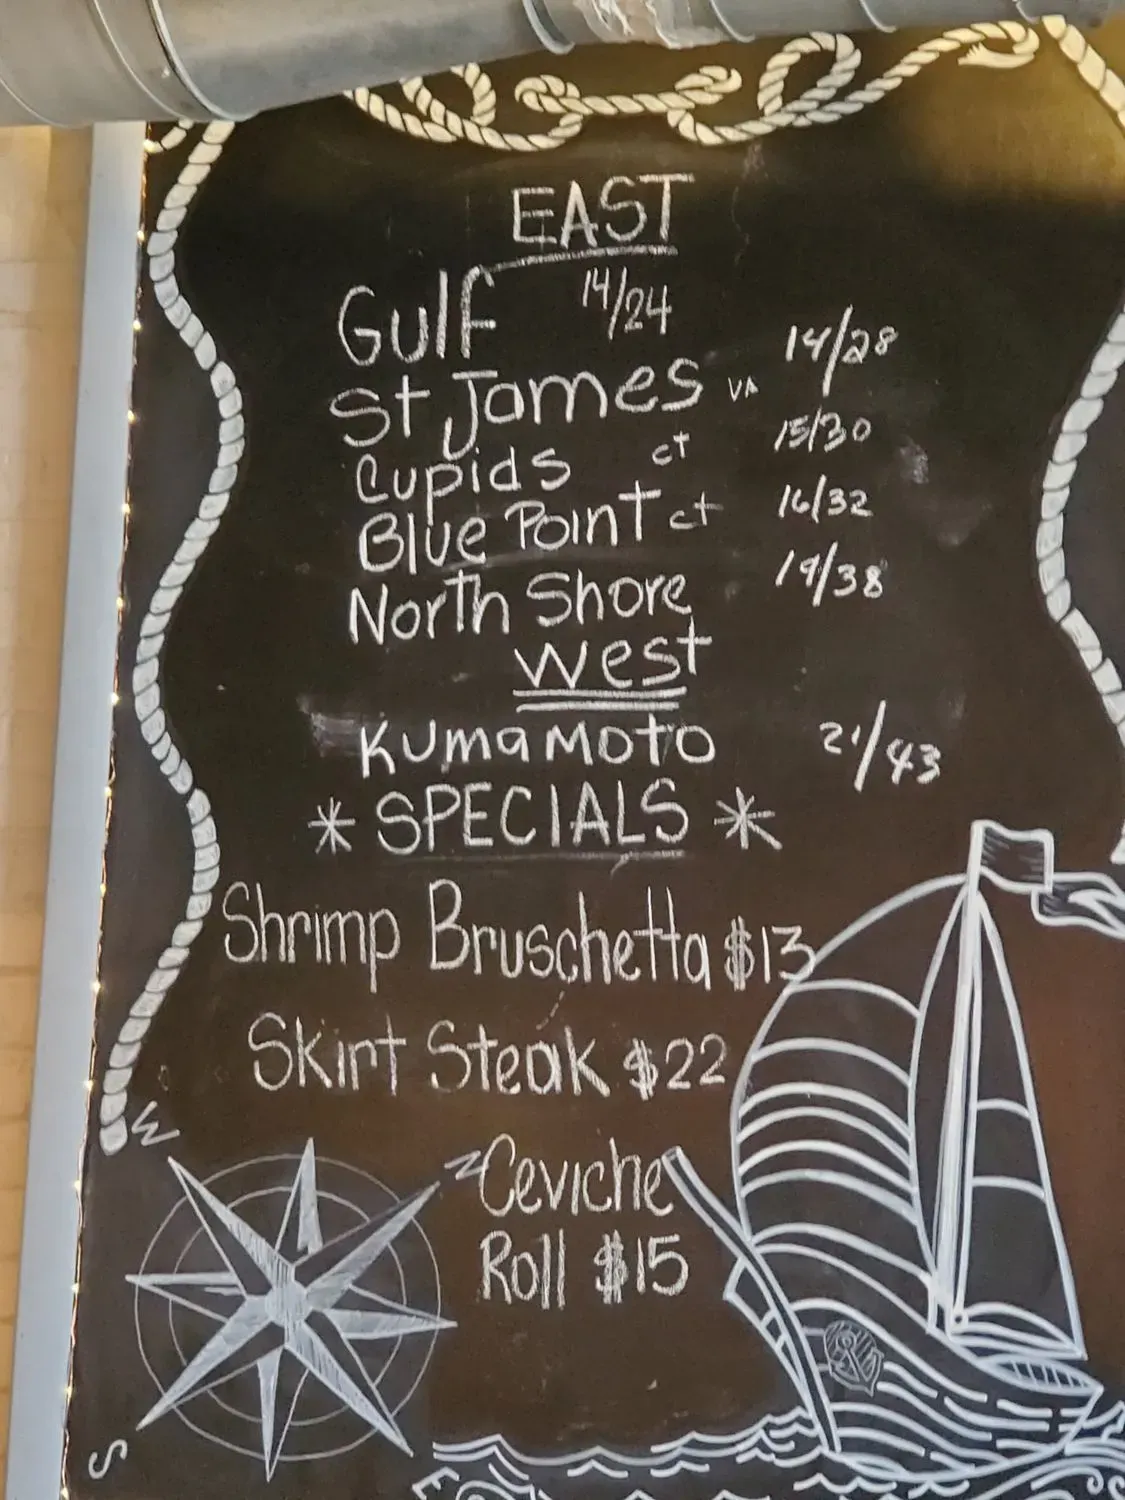 EAST
Gulf 14/24
St James VA 14/28
Cupids CT 15/30
Blue Point CT 16/32
North Shore 19/38
West
Kumamoto 21/43
* SPECIALS *
Shrimp Bruschetta $13
Skirt Steak $22
Ceviche
Roll $15
W
N
S
E